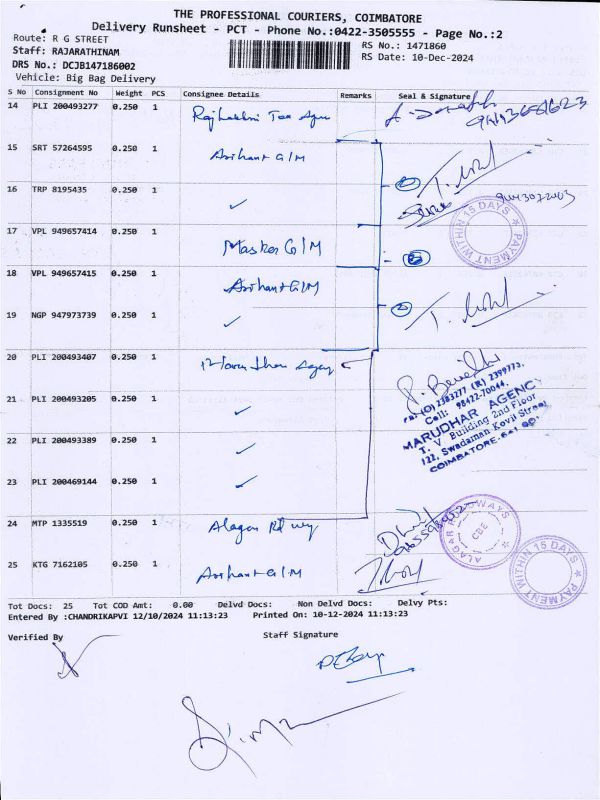 THE PROFESSIONAL COURIERS, COIMBATORE
Delivery Runsheet - PCT - Phone No.:0422-3505555 - Page No.:2
Route: R G STREET
RS No.: 1471860
Staff: RAJARATHINAM
RS Date: 10-Dec-2024
DRS No.: DCJB147186002
Vehicle: Big Bag Delivery
S No Consignment No Weight PCS Consignee Details Remarks Seal & Signature
14 PLI 200493277 0.250 1
15 SRT 57264595 0.250 1 Arihant G/M
16 TRP 8195435 0.250 1 ✓
17 VPL 949657414 0.250 1 G/M
18 VPL 949657415 0.250 1 Arihant G/M
19 NGP 947973739 0.250 1 ✓
20 PLI 200493407 0.250 1
21 PLI 200493205 0.250 1 ✓
22 PLI 200493389 0.250 1 ✓
23 PLI 200469144 0.250 1 ✓
24 MTP 1335519 0.250 1
25 KTG 7162105 0.250 1 Arihant G/M
PAYMENT WITHIN 15 DAYS
(O) 2383277 (R) 2399773.
Cell: 98422-70044,
MARUDHAR AGENCY
T. V. Building 2nd Floor
122, Swadaman Kovil Street
ALAGAR ROADWAYS
CBE
PAYMENT WITHIN 15 DAYS
Tot Docs: 25 Tot COD Amt: 0.00 Delvd Docs: Non Delvd Docs: Delvy Pts:
Entered By :CHANDRIKAPVI 12/10/2024 11:13:23 Printed On: 10-12-2024 11:13:23
Verified By
Staff Signature